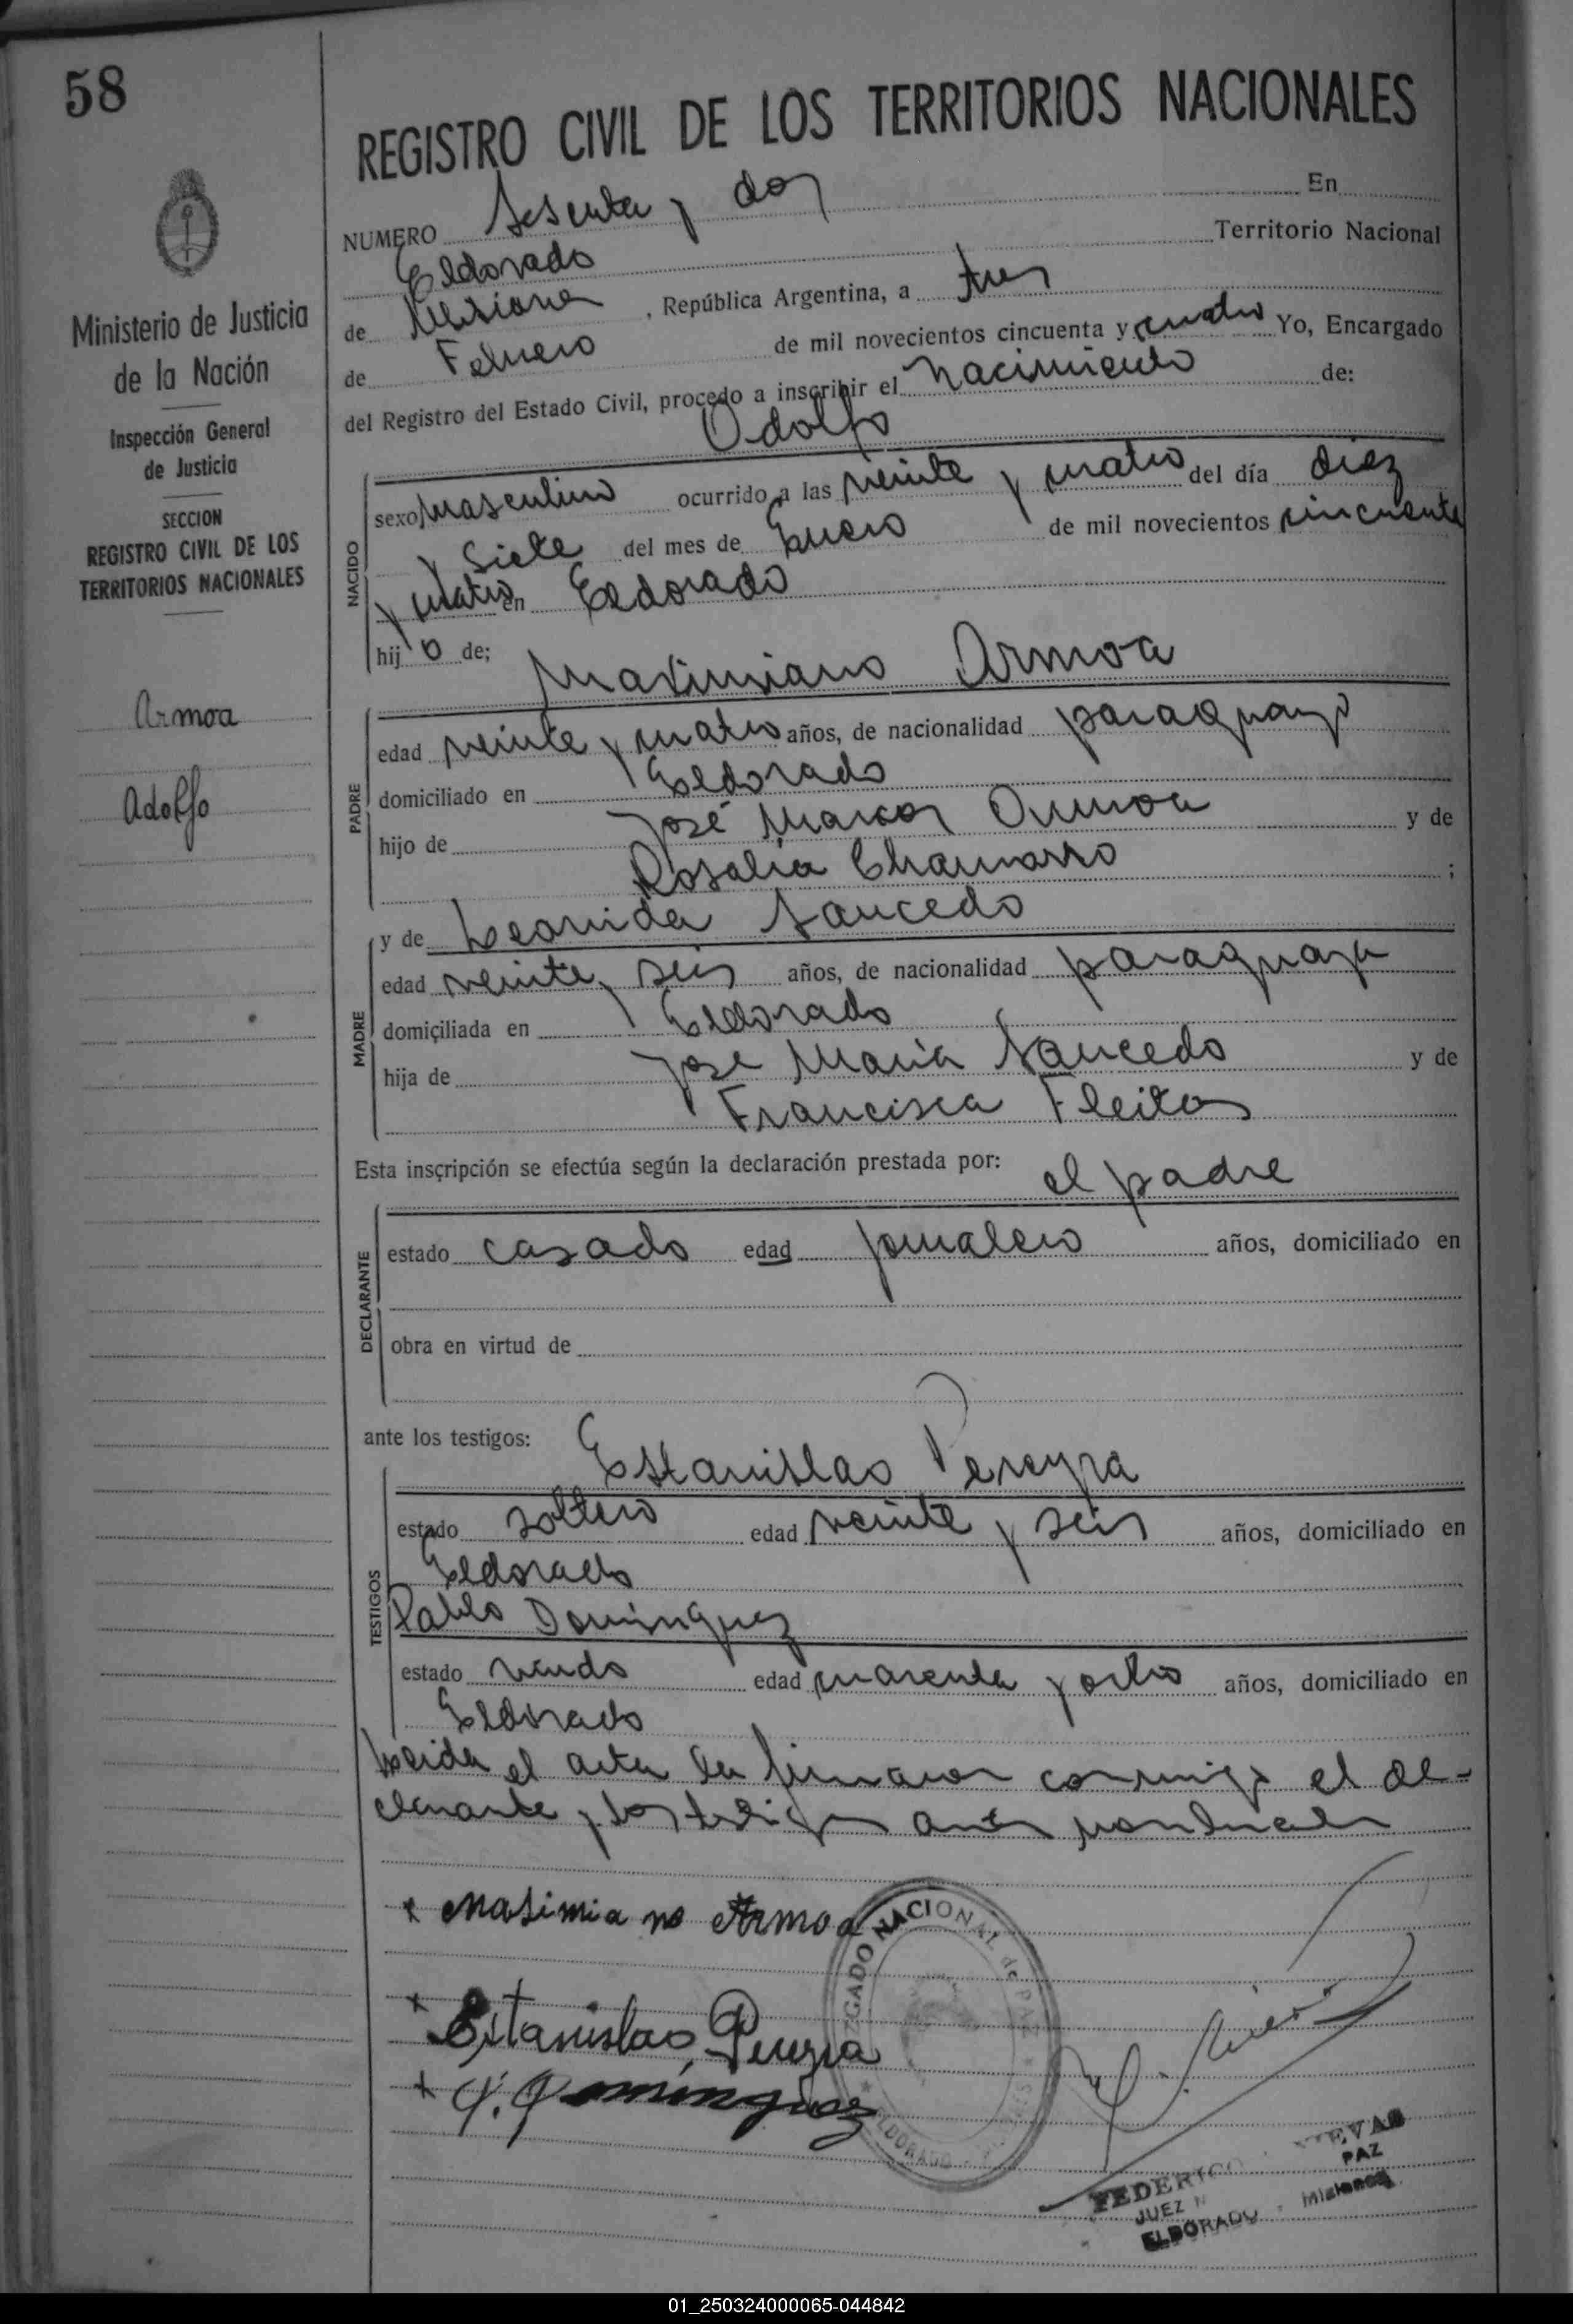 58
Ministerio de Justicia
de la Nación
Inspección General
de Justicia
SECCION
REGISTRO CIVIL DE LOS
TERRITORIOS NACIONALES
Armoa
Adolfo
REGISTRO CIVIL DE LOS TERRITORIOS NACIONALES
NUMERO Sesenta y dos En
Eldorado Territorio Nacional
de Misiones, República Argentina, a tres
de Febrero de mil novecientos cincuenta y cuatro Yo, Encargado
del Registro del Estado Civil, procedo a inscribir el nacimiento de:
Adolfo
NACIDO
sexo masculino ocurrido a las veinte y cuatro del día diez
y siete del mes de Enero de mil novecientos cincuenta
y cuatro en Eldorado
hijo de; Maximiano Armoa
PADRE
edad veinte y cuatro años, de nacionalidad paraguayo
domiciliado en Eldorado
hijo de José Marcos Armoa y de
Rosalia Chamorro ;
MADRE
y de Leonida Saucedo
edad veinte y seis años, de nacionalidad paraguaya
domiciliada en Eldorado
hija de Jose Maria Saucedo y de
Francisca Fleitas
Esta inscripción se efectúa según la declaración prestada por: el padre
DECLARANTE
estado casado edad jornalero años, domiciliado en
obra en virtud de
ante los testigos: Estanislao Pereyra
TESTIGOS
estado soltero edad veinte y seis años, domiciliado en
Eldorado
Pablo Dominguez
estado viudo edad cuarenta y ocho años, domiciliado en
Eldorado
Leida el acta la firmaron conmigo el de-
clarante y los testigos
x Masimia no Armoa
x Estanislao Pereyra
x P. Dominguez
JUZGADO NACIONAL de PAZ
ELDORADO
FEDERICO
JUEZ PAZ
ELDORADO - Misiones
01_250324000065-044842